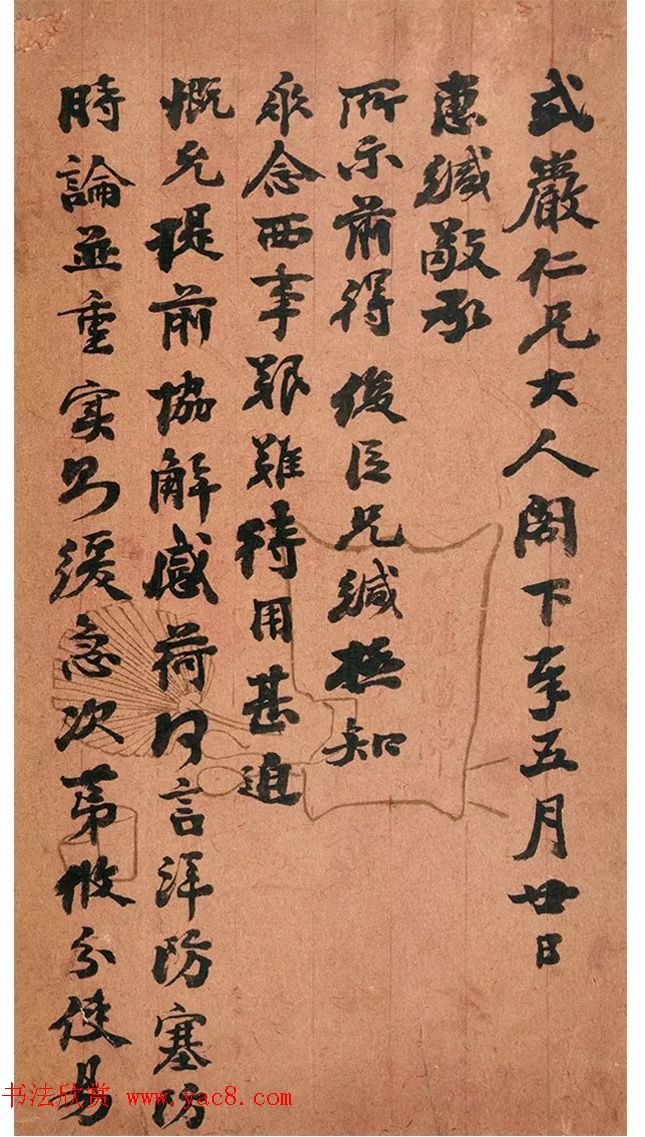 式巖仁兄大人閣下奉五月廿日
惠緘敬承
所示前得俊臣兄緘知
念西事艱難待用甚迫
慨允提前協解感荷何言洋防塞防
時論並重實則緩急次第攸分使易
书法欣赏 www.yac8.com